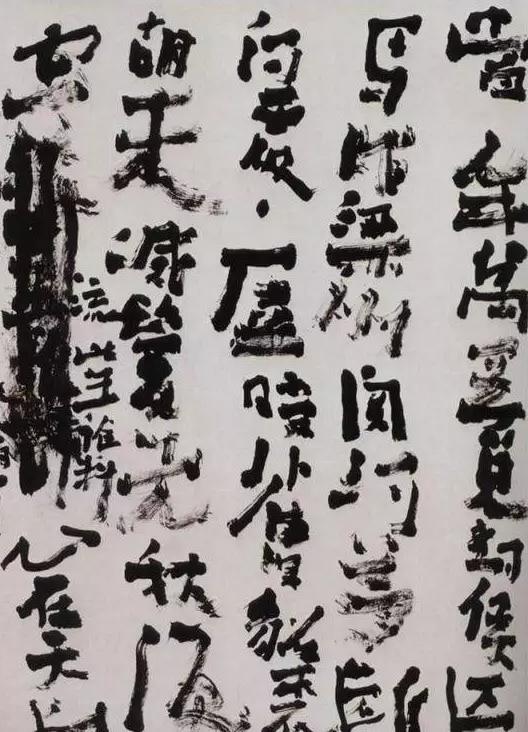 當年萬里覓封侯匹
馬戍梁州關河夢斷
何處塵暗舊貂裘
胡未滅鬢先秋淚
空
流此生誰料
心在天山